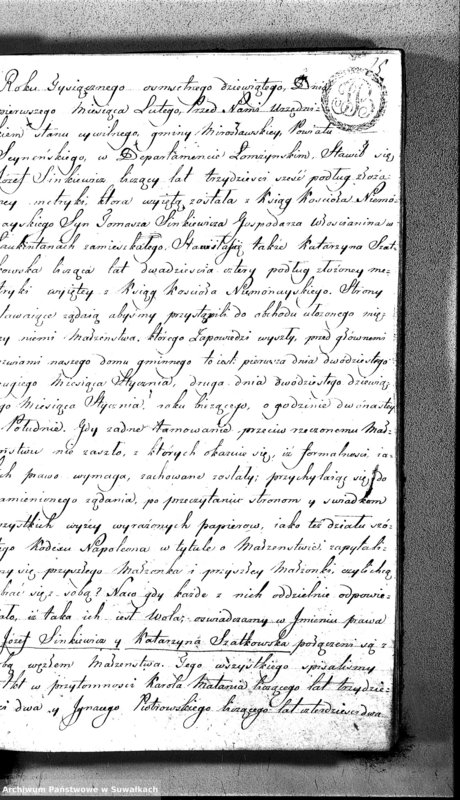 15
Roku Tysiącznego osmsetnego dziewiątego, Dnia
pierwszego Miesiąca Lutego, Przed Nami Urzędni-
kiem stanu cywilnego, gminy Mirosławskiey, Powiatu
Seynenskiego, w Departamencie Łomżynskim, Stawił się
Józef Sinkiewicz liczący lat trzydziesci sześć podług złożo
ney metryki, ktora wyięta została z Ksiąg Koscioła Niemo-
nayskiego Syn Tomasza Sinkiewicza Gospodarza Włoscianina w
zamieszkałego. Stawiła się także Katarzyna Szat-
kowska licząca lat dwadziescia cztery podług złożoney me-
tryki wyiętey z Ksiąg Koscioła Niemonayskiego. Strony
stawaiące ządaią abysmy przystąpili do obchodu ułożonego mię-
dzy niemi Małżeństwa, ktorego Zapowiedzi wyszły, przed głównemi
drzwiami naszego domu gminnego to iest: pierwsza dnia dwódziestego
drugiego Miesiąca Stycznia, druga dnia dwódziestego dziewią-
tego Miesiąca Stycznia, roku bieżącego, o godzinie dwónastey
w Południe. Gdy żadne tamowanie przeciw rzeczonemu Mał-
żeństwu nie zaszło, z których okazuie się, iż formalności ia-
kich prawo wymaga, zachowane zostały; przychylaiąc się do
wzmienionego ządania, po przeczytaniu stronom y swiadkom
wszystkich wyżey wyrażonych papierow, iako też działu szó-
stego Kodexu Napoleona w tytule o Małżenstwie, zapytali-
smy się przyszłego Małżonka i przyszłey Małżonki, czyli chcą
pobrać się z sobą? Na co gdy każde z nich oddzielnie odpowie-
działo, iż taka ich iest Wola; oswiadczamy w Jmieniu prawa
iż Józef Sinkiewicz y Katarzyna Szatkowska połączeni są z
sobą węzłem Małżenstwa. Czego wszystkiego spisalismy
Akt w przytomnosci Karola Matania liczącego lat trzydzie-
sci dwa y Jgnacego Piotrowskiego liczącego lat czterdziesci dwa
Archiwum Państwowe w Suwałkach